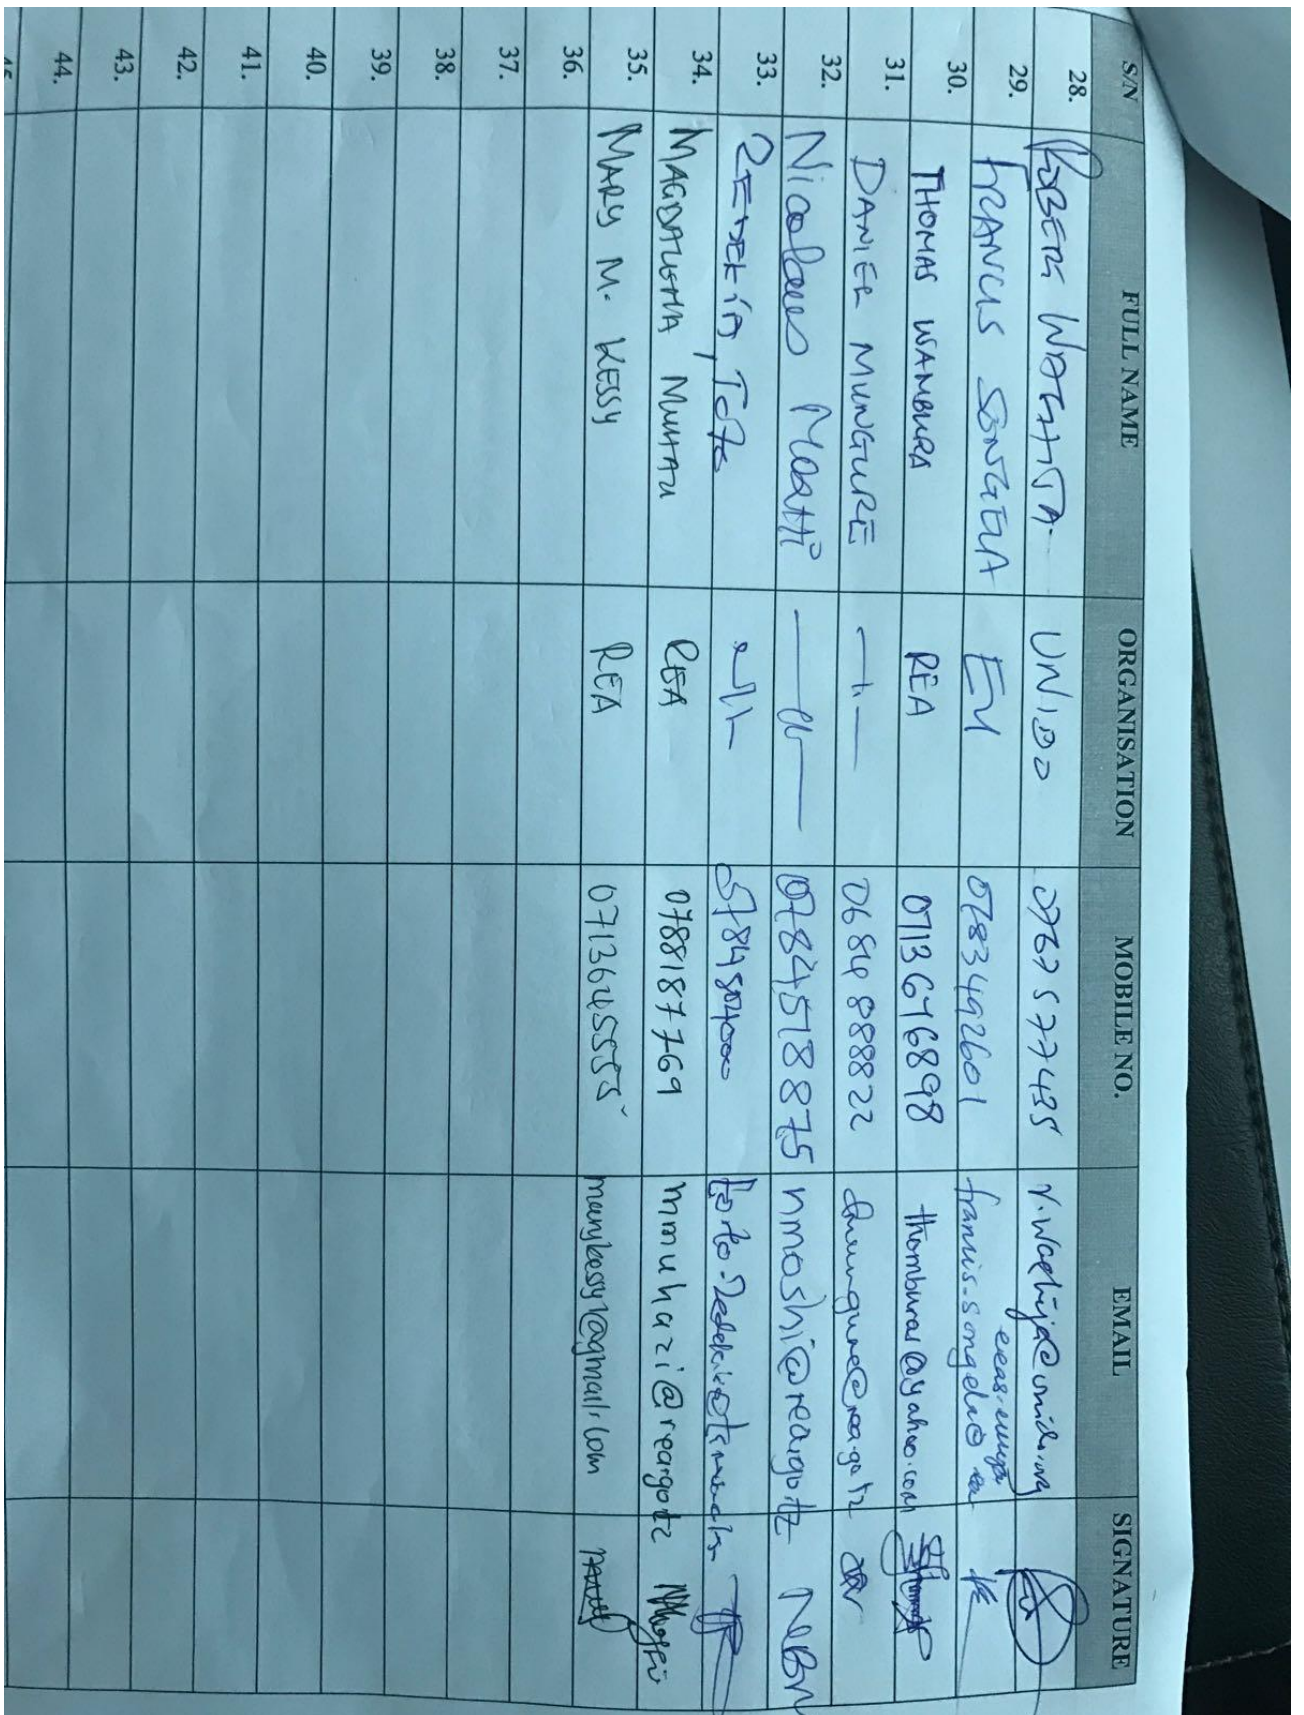 S/N FULL NAME ORGANISATION MOBILE NO. EMAIL SIGNATURE
28. ROBERT UNIDO 0767577435
29. FRANCIS SONGELA EU 0783492601 francis.songela@
30. THOMAS WAMBURA REA 0713676898 thomburas@yahoo.com
31. DANIEL MUNGURE 0684888822 dmungure@rea.go.tz
32. Nicolaus Moshi 0784518875 nmoshi@rea.go.tz
33. ZEDEKIA, Toto
34. MAGDALENA MUHAZI REA 0788187769 mmuhazi@rea.go.tz
35. MARY M. KESSY REA 0713645555 marykessy1@gmail.com
36.
37.
38.
39.
40.
41.
42.
43.
44.
45